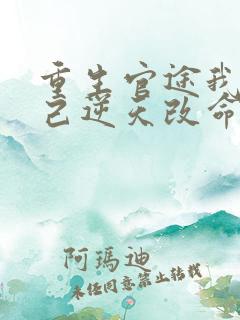 重生官途我
己逆天改命
阿瑪迪
未经同意禁止转载